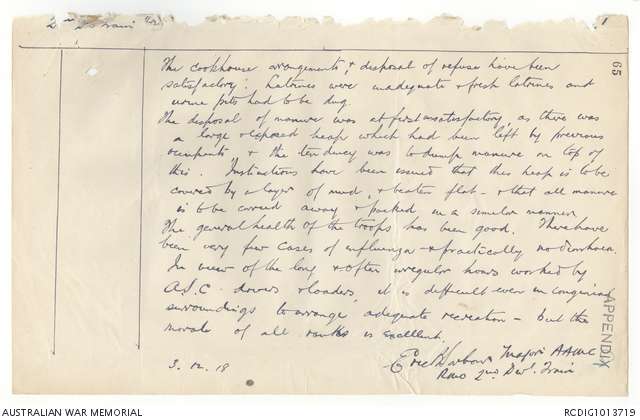 2nd Train
1
65
The cookhouse arrangements & disposal of refuse have been
satisfactory: Latrines were inadequate & fresh latrines and
urine pits had to be dug.
The disposal of manure was at first unsatisfactory, as there was
a large & exposed heap which had been left by previous
occupants & the tendency was to dump manure on top of
this. Instructions have been issued that this heap is to be
covered by a layer of mud, & beaten flat - & that all manure
is to be carried away & packed in a similar manner.
The general health of the troops has been good. There have
been very few cases of influenza - & practically no diarrhoea.
In view of the long & often irregular hours worked by
A.S.C. drivers & loaders, it is difficult even in congenial
surroundings to arrange adequate recreation - but the
morale of all ranks is excellent.
APPENDIX
3.12.18
Eric Harbour Major AAMC
RMO 2nd Div. Train
AUSTRALIAN WAR MEMORIAL
RCDIG1013719